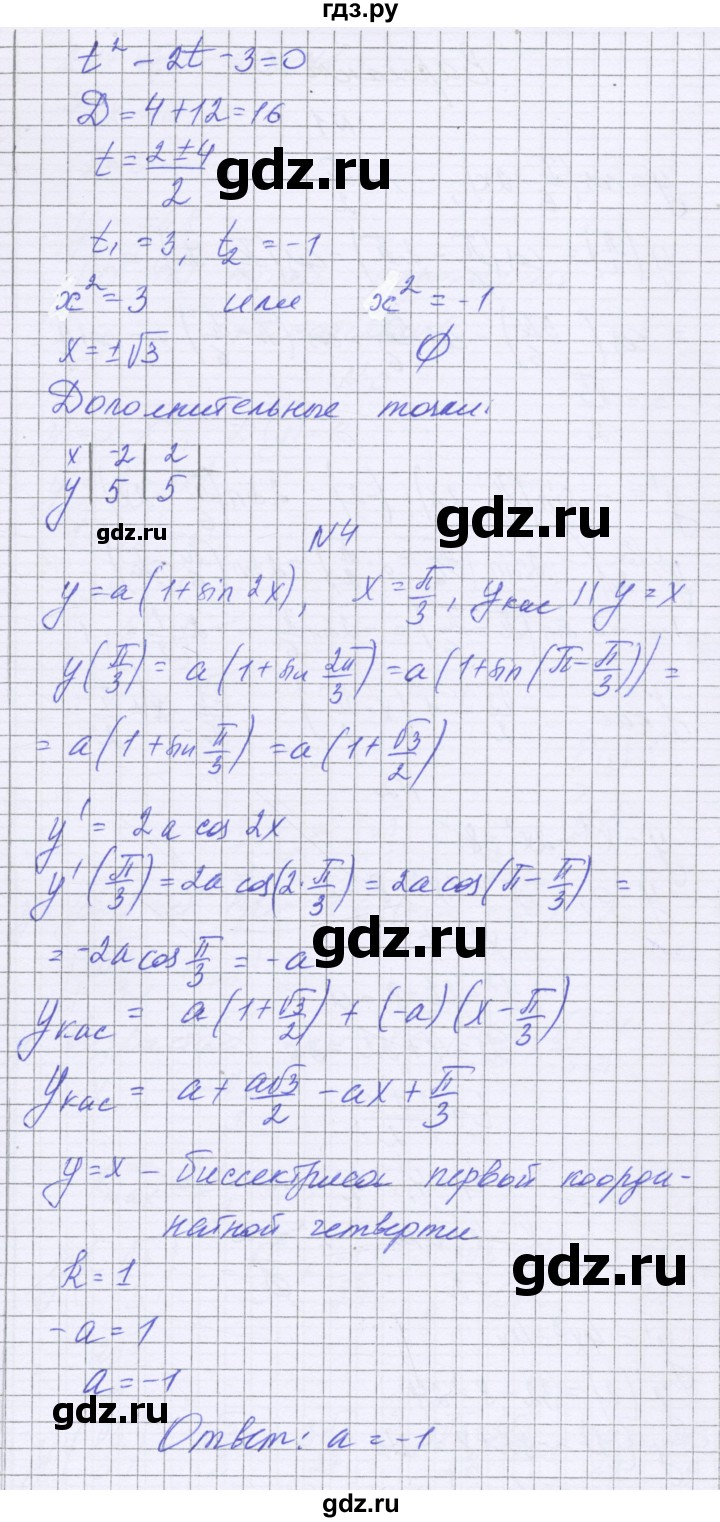 гдз.ру
t² - 2t - 3 = 0
D = 4 + 12 = 16
t = (2 ± 4)/2
gdz.ru
t₁ = 3, t₂ = -1
x² = 3 или x² = -1
x = ±√3 ∅
Дополнительные точки:
x | -2 | 2 |
y | 5 | 5 |
gdz.ru
gdz.ru
N4
y = a(1 + sin 2x), x = π/3, yкас || y = x
y(π/3) = a(1 + sin 2π/3) = a(1 + sin(π - π/3)) =
= a(1 + sin π/3) = a(1 + √3/2)
y' = 2a cos 2x
y'(π/3) = 2a cos(2·π/3) = 2a cos(π - π/3) =
= -2a cos π/3 = -a
gdz.ru
yкас = a(1 + √3/2) + (-a)(x - π/3)
yкас = a + a√3/2 - ax + π/3
y = x - биссектриса первой коорди-
натной четверти
gdz.ru
k = 1
-a = 1
a = -1
gdz.ru
Ответ: a = -1
gdz.ru